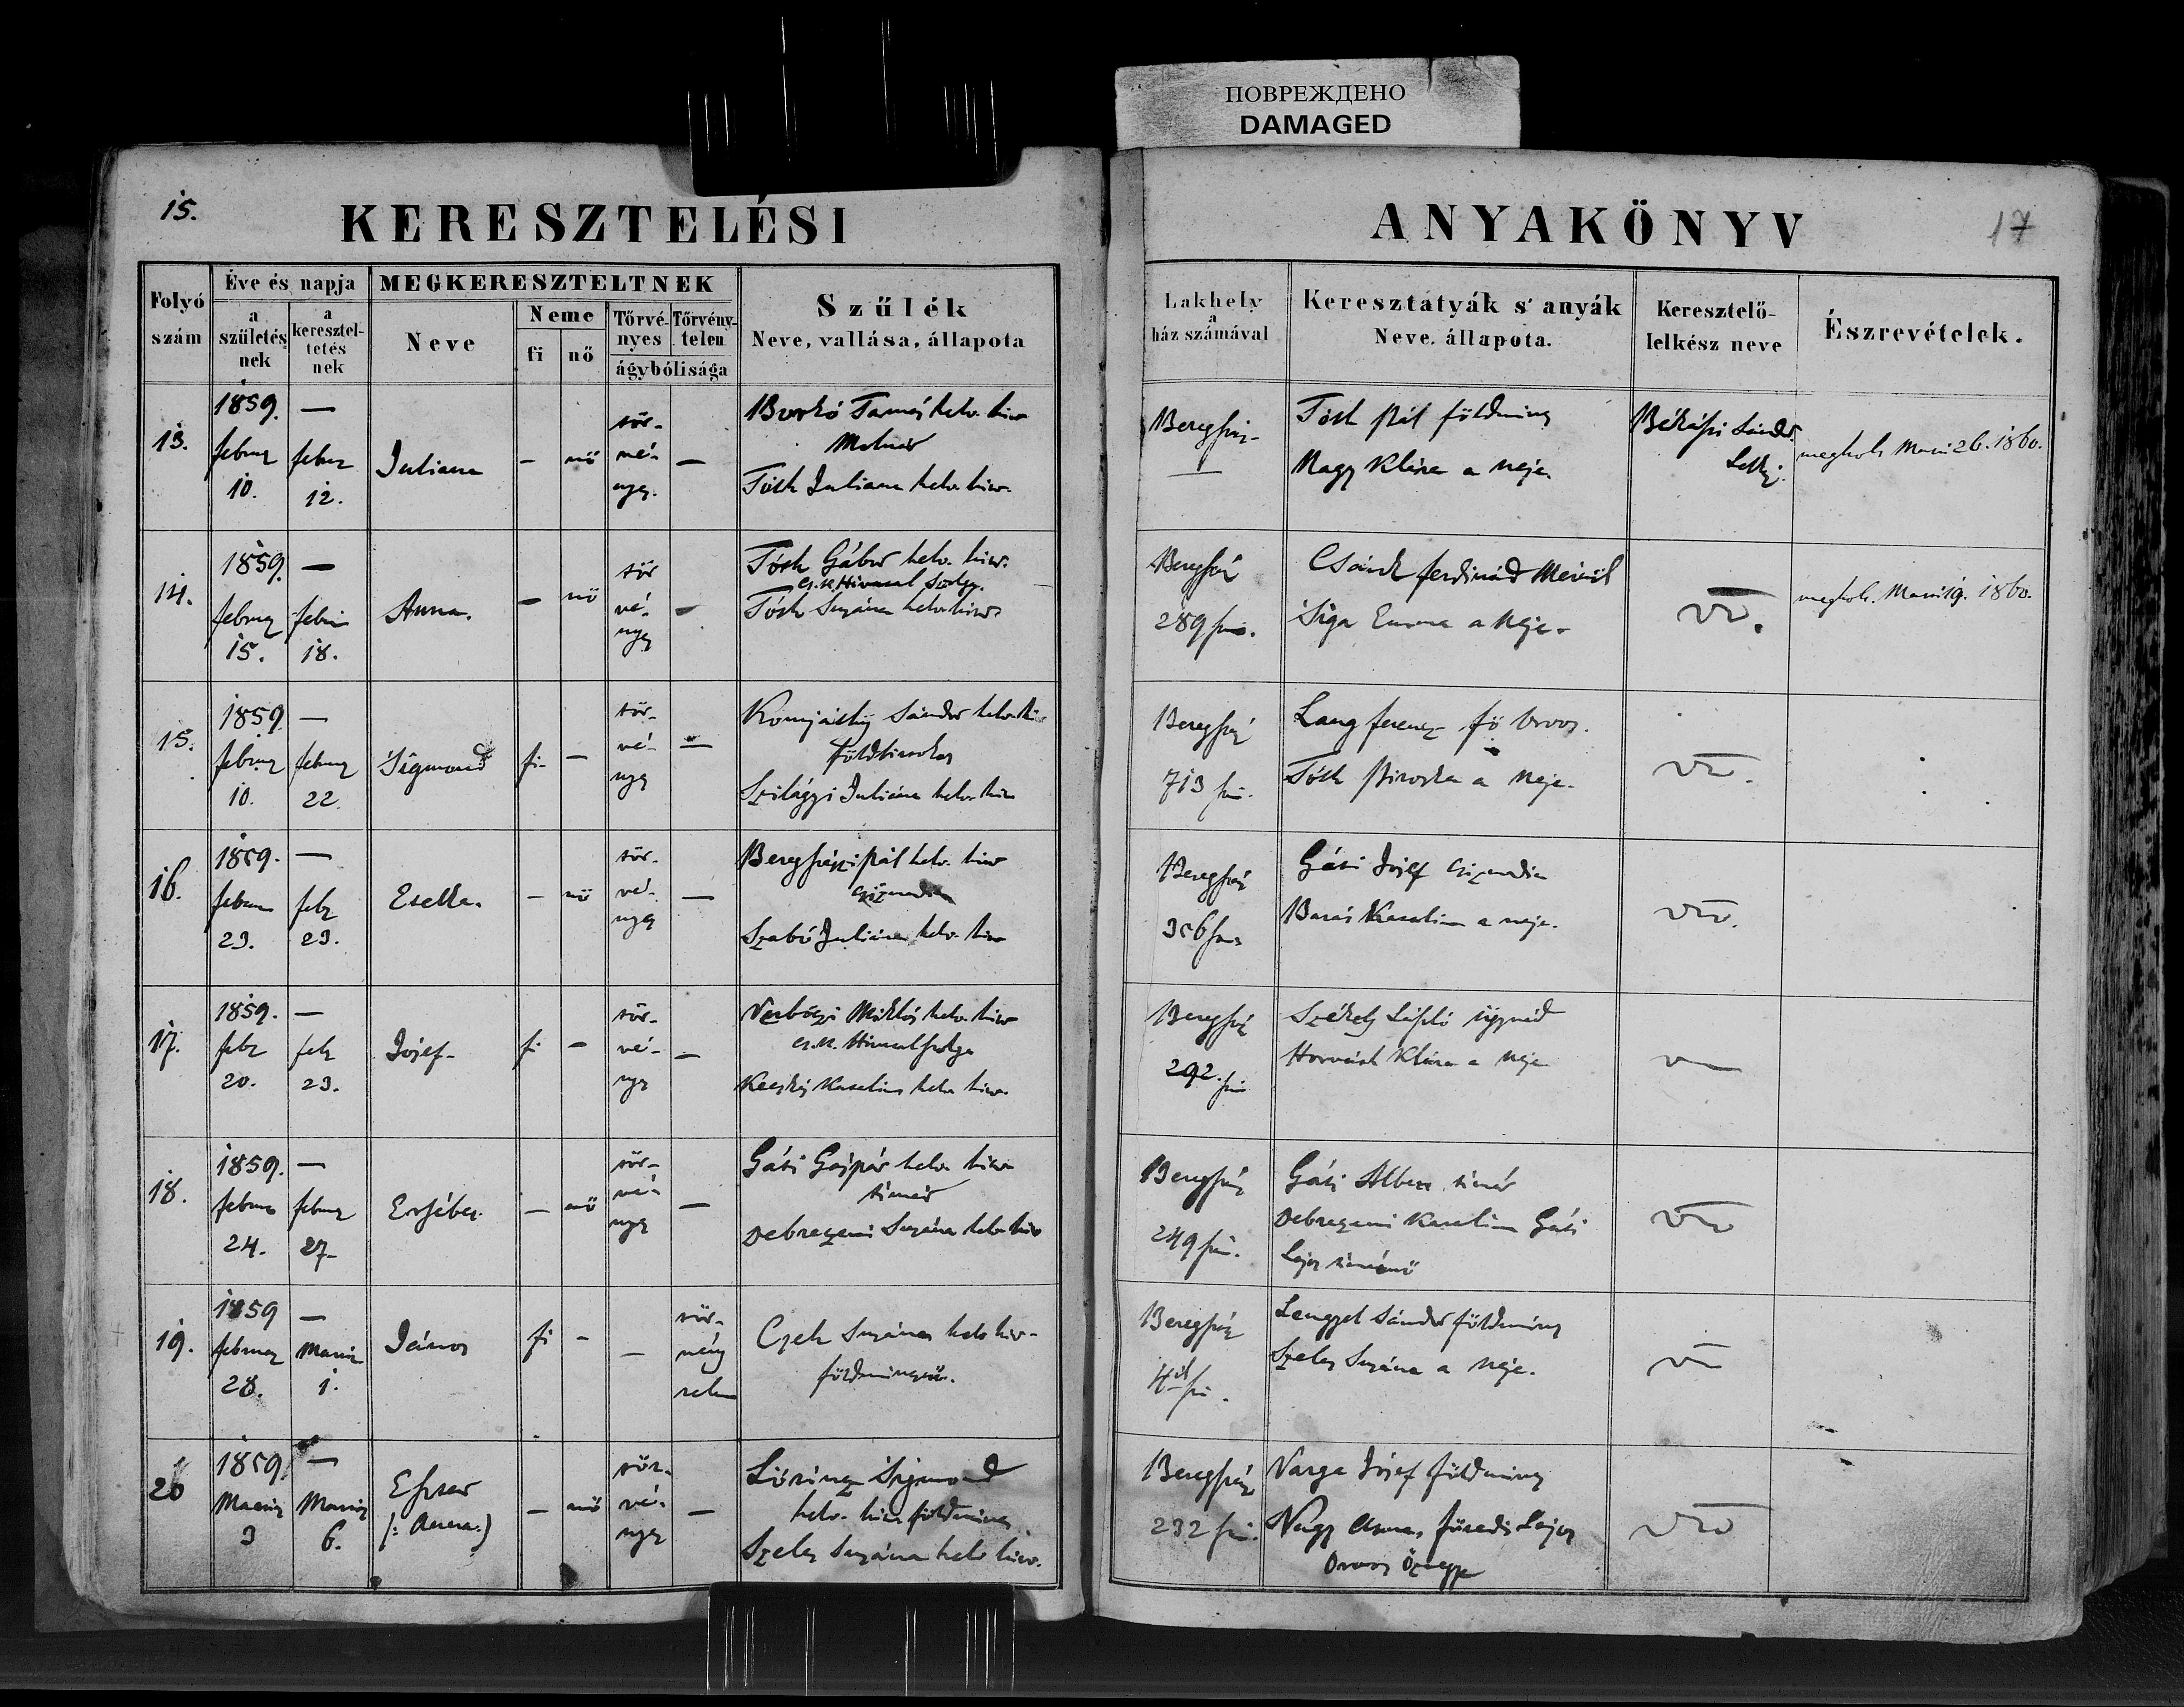 ПОВРЕЖДЕНО
DAMAGED
15.
KERESZTELÉSI
ANYAKÖNYV
17
Folyó szám
Éve és napja
a születés nek
a keresztel- tetés nek
MEGKERESZTELTNEK
Neve
Neme
fi
nő
Törvé- nyes
Törvény- telen
ágybólisága
Szűlék
Neve, vallása, állapota
Lakhely
a
ház számával
Keresztatyák s' anyák
Neve. állapota.
Keresztelő-
lelkész neve
Észrevételek.
13.
1859. —
febru
10.
febr
12.
Juliana
—
nő
tör-
vé-
nyes.
—
Tamás helv. hitv
Molnár
Tóth Juliana helv. hitv.
Beregszász
—
Tóth Pál földmives
Nagy Klára a neje.
Sándor
Lelkész
megholt Marti 26. 1860.
14.
1859. —
febru
15.
febru
18.
Anna.
—
nő
tör
vé-
nyes
-
Tóth Gábor helv. hitv.
cs. k. Hivatal szolga
Tóth Susána helv hitv
Beregszász
289 sz.
Ferdinánd
Emma a neje.
megholt. Marti 19. 1860.
15.
1859 —
febru
10.
febru
22.
Sigmond
fi-
—
tör-
vé-
nyes
—
Komjáthy Sándor helv hi
földbirtokos
Szilágyi Juliána helv hi
Beregszász
713 sz.
Lang Ferencz fő orvos.
Tóth Piroska a neje.
16.
1859. —
febru
23.
febr
23.
Esetka.
—
nő
tör-
vé-
nyes
—
Beregszászi Pál helv. hitv
csizmadia
Szabó Juliána helv hitv
Beregszász
306 sz
Gáti Josef csizmadia
Katalin a neje.
17.
1859. —
febr
20.
febr
23.
Josef-
fi
—
tör-
vé-
nyes
—
Verbőczi Miklós helv. hitv
cs. k. Hivatalszolga
Kecskés Katalin helv hitv.
Beregszász
292. sz
Székely László ügyvéd
Horváth Klára a neje
18.
1859. —
febru
24.
febru
27-
Ersébet
—
nő
tör-
vé-
nyes
—
Gáti Gáspár helv. hitv
timár
Debreczeni Susána helv hitv
Beregszász
249 sz.
Gáti Albert timár
Debreczeni Katalin Gáti
Lajos timárnő
19.
1859 —
februar
28.
Marti
1.
János
fi
-
—
tör-
vény
telen
Czeh Susána helv hitv-
földmivesnő.
Beregszász
4ik sz.
Lengyel Sándor földmives
Szeles Susána a neje.
20
1859. —
Marti
3
Marti
6.
Eszter
(: Anna.)
—
nő
tör-
vé-
nyes
—
Lőrincz Sigmond
helv. hitv földmives
Szeles Susána helv hitv.
Beregszász
232 sz.
Varga Josef földmives
Nagy Füredi Lajos
Orvos Özvegye